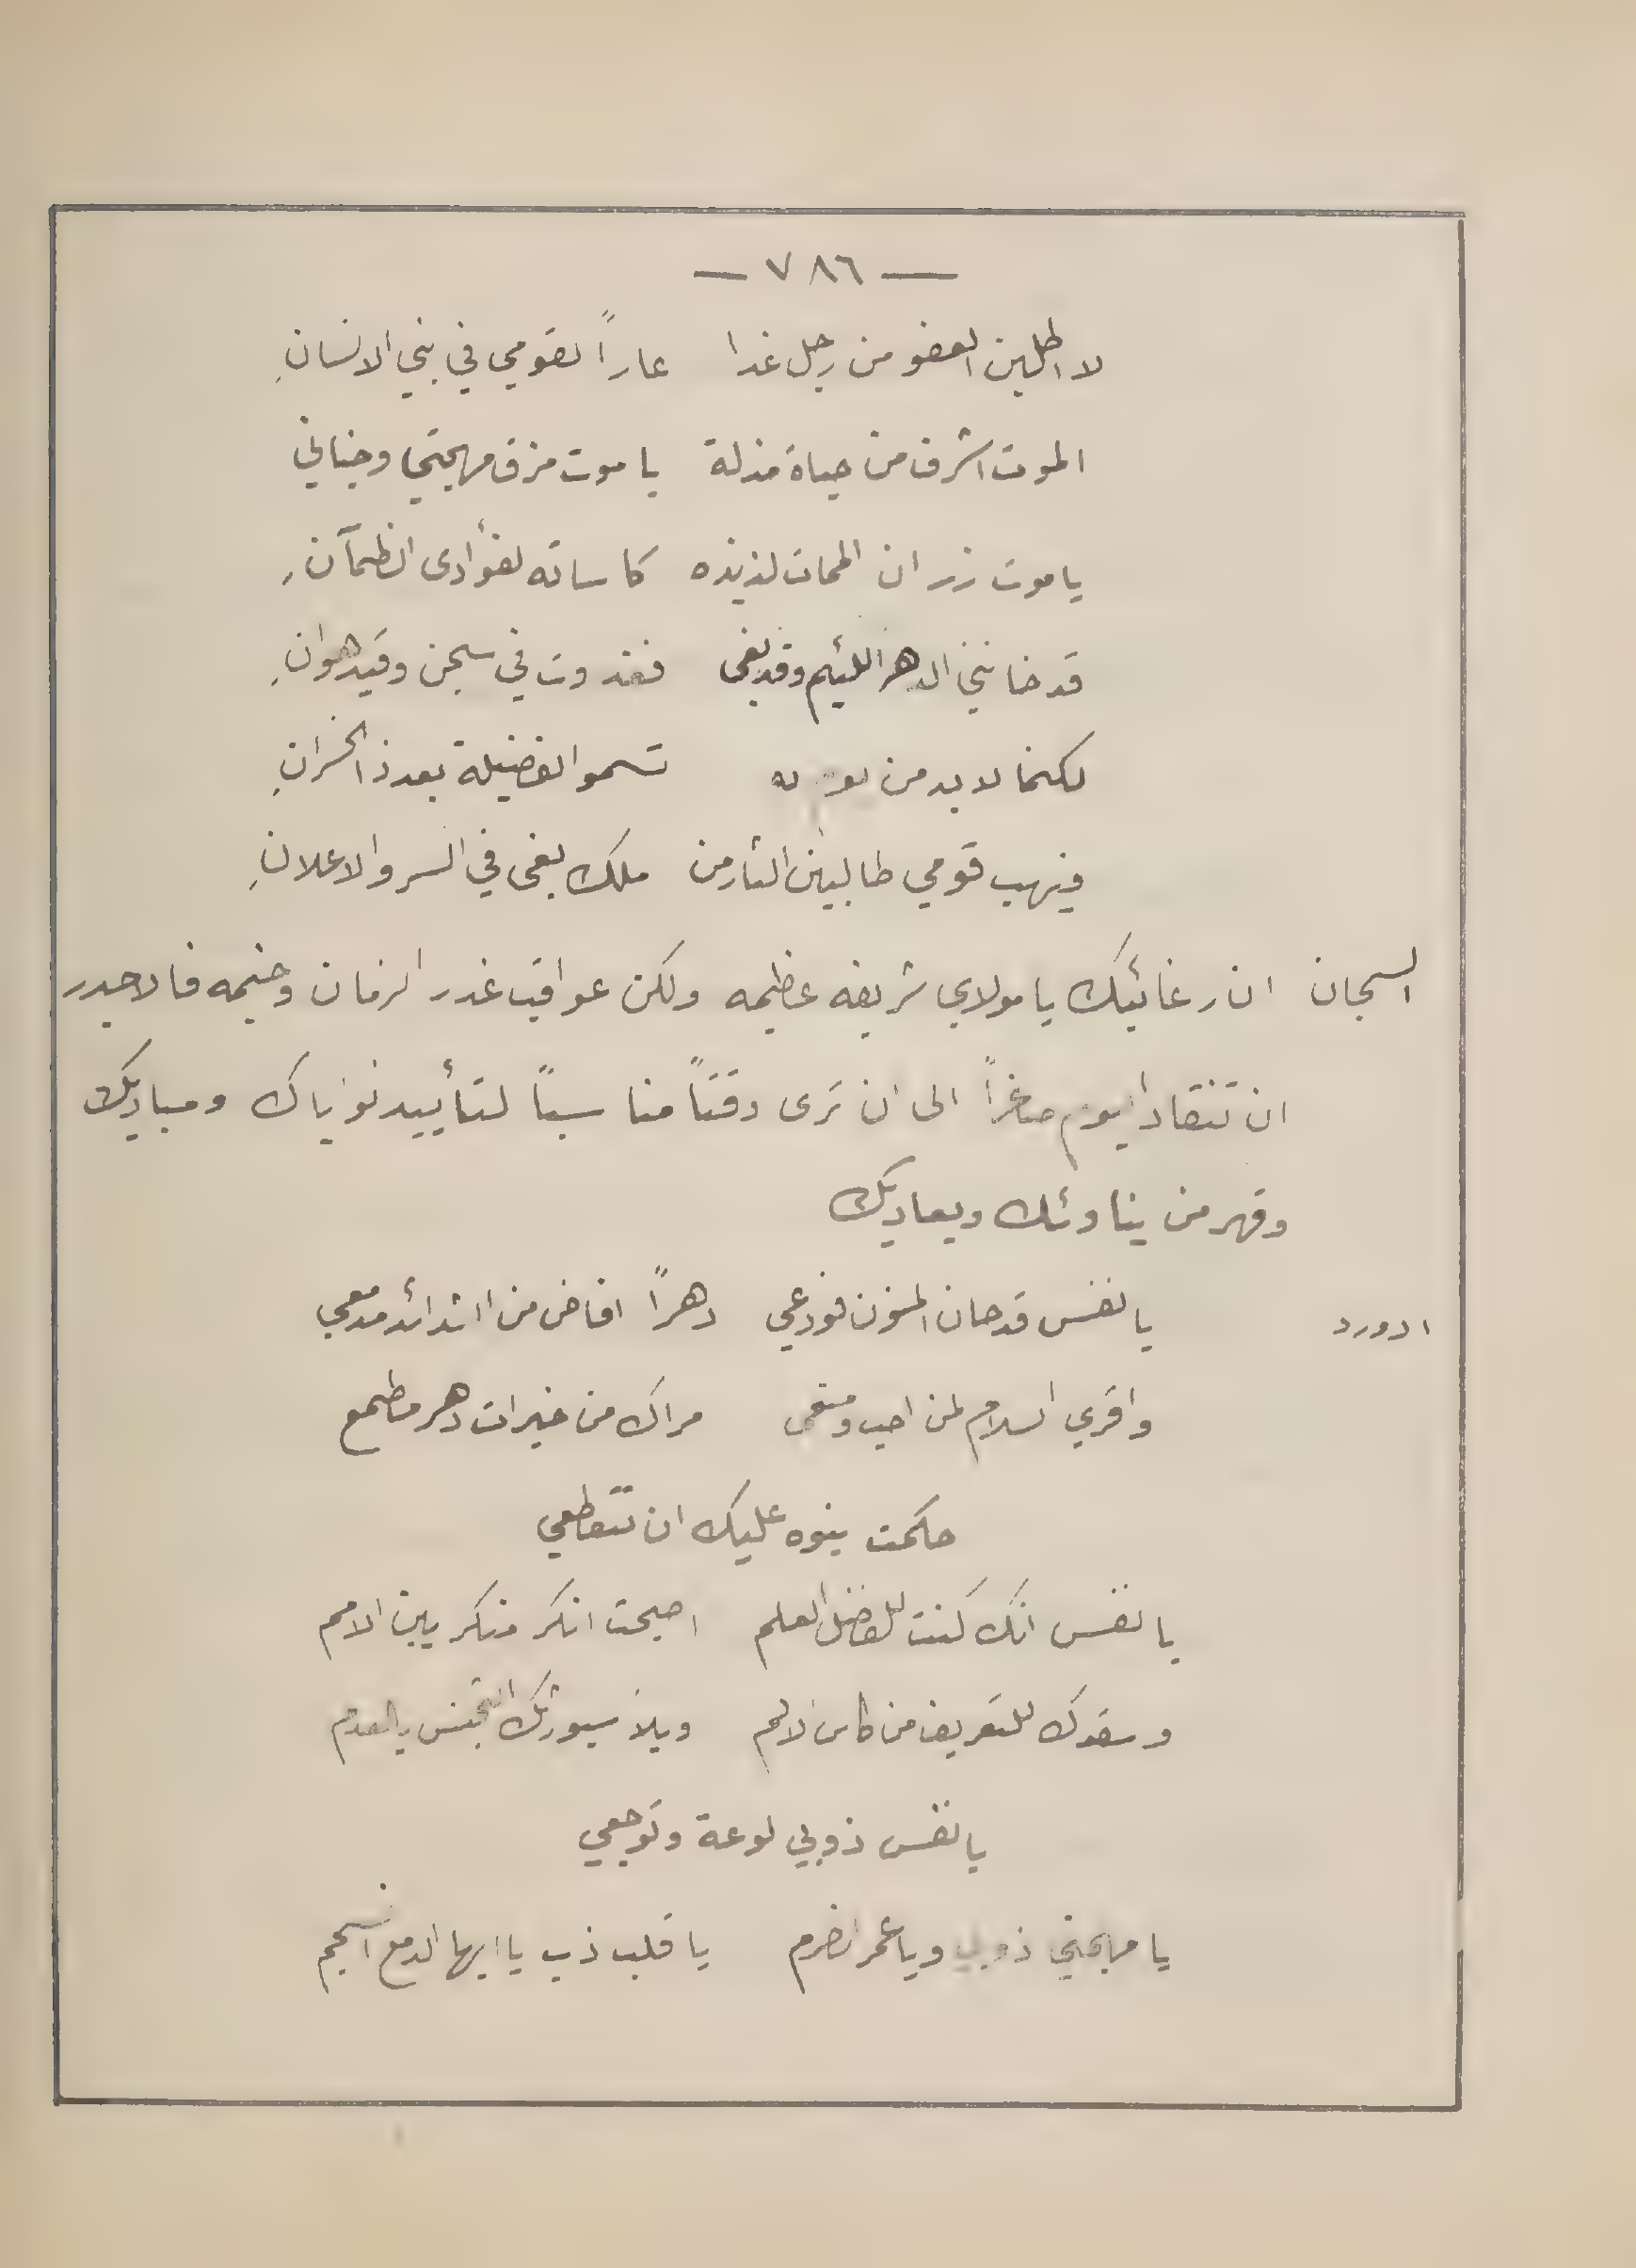 — ٧٨٦ —
لا اطلبن العفو من رجل غدا عاراً لقومي في بني الانسانِ
الموت اشرف من حياة مذلة يا موت مزق مهجتي وجناني
يا موت زر ان الممات لذيذه كاساته لفؤادى الظمآنِ
قد خانني الدهر اللئيم وقد بغى فغدوت في سجن وقيد هوانِ
لكنما لا بد من تسمو الفضيلة بعد ذا الخسرانِ
فيهب قومي طالبين الثار من ملك بغى في السر والاعلانِ
السجان ان رغائبك يا مولاي شريفه عظيمه ولكن عواقب غدر الزمان وخيمه فالاجدر
ان تنقاد اليوم صاغراً الى ان ترى وقتاً مناسباً لتأييد نواياك ومباديك
وقهر من يناوئك ويعاديك
ادورد يا نفس قد حان المنون فودعي دهراً افاض من الشدائد مدمعي
واقري السلام لمن احب ومنتهى مراك من خيرات دهر مطمع
حكمت بنوه عليك ان تتقطعي
يا نفس انك كنت للفضل العلم اصبحت انكر منكر بين الامم
وسقوك للتعريف من كاس الالم ويلاً سيورثك التجنس بالعدم
يا نفس ذوبي لوعة وتوجعي
يا مهجتي ذوبي ويا عمر انصرم يا قلب ذب يا ايها الدمع انسجم